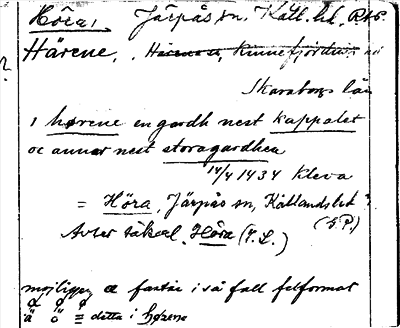 Höra, Järpås sn, Kåll. hd, R
Härene, Kinnefjärdings
Skaraborgs län
i hørene en gardh nest kappalet
oc annar nest storagardhen
14/4 1434 Kleva
= Höra, Järpås sn, Kållandshd ?
(G.P.)
Avser säkerl. Höra (I.L.)
möjligen i så fall felformat
ä ö = detta i hørene